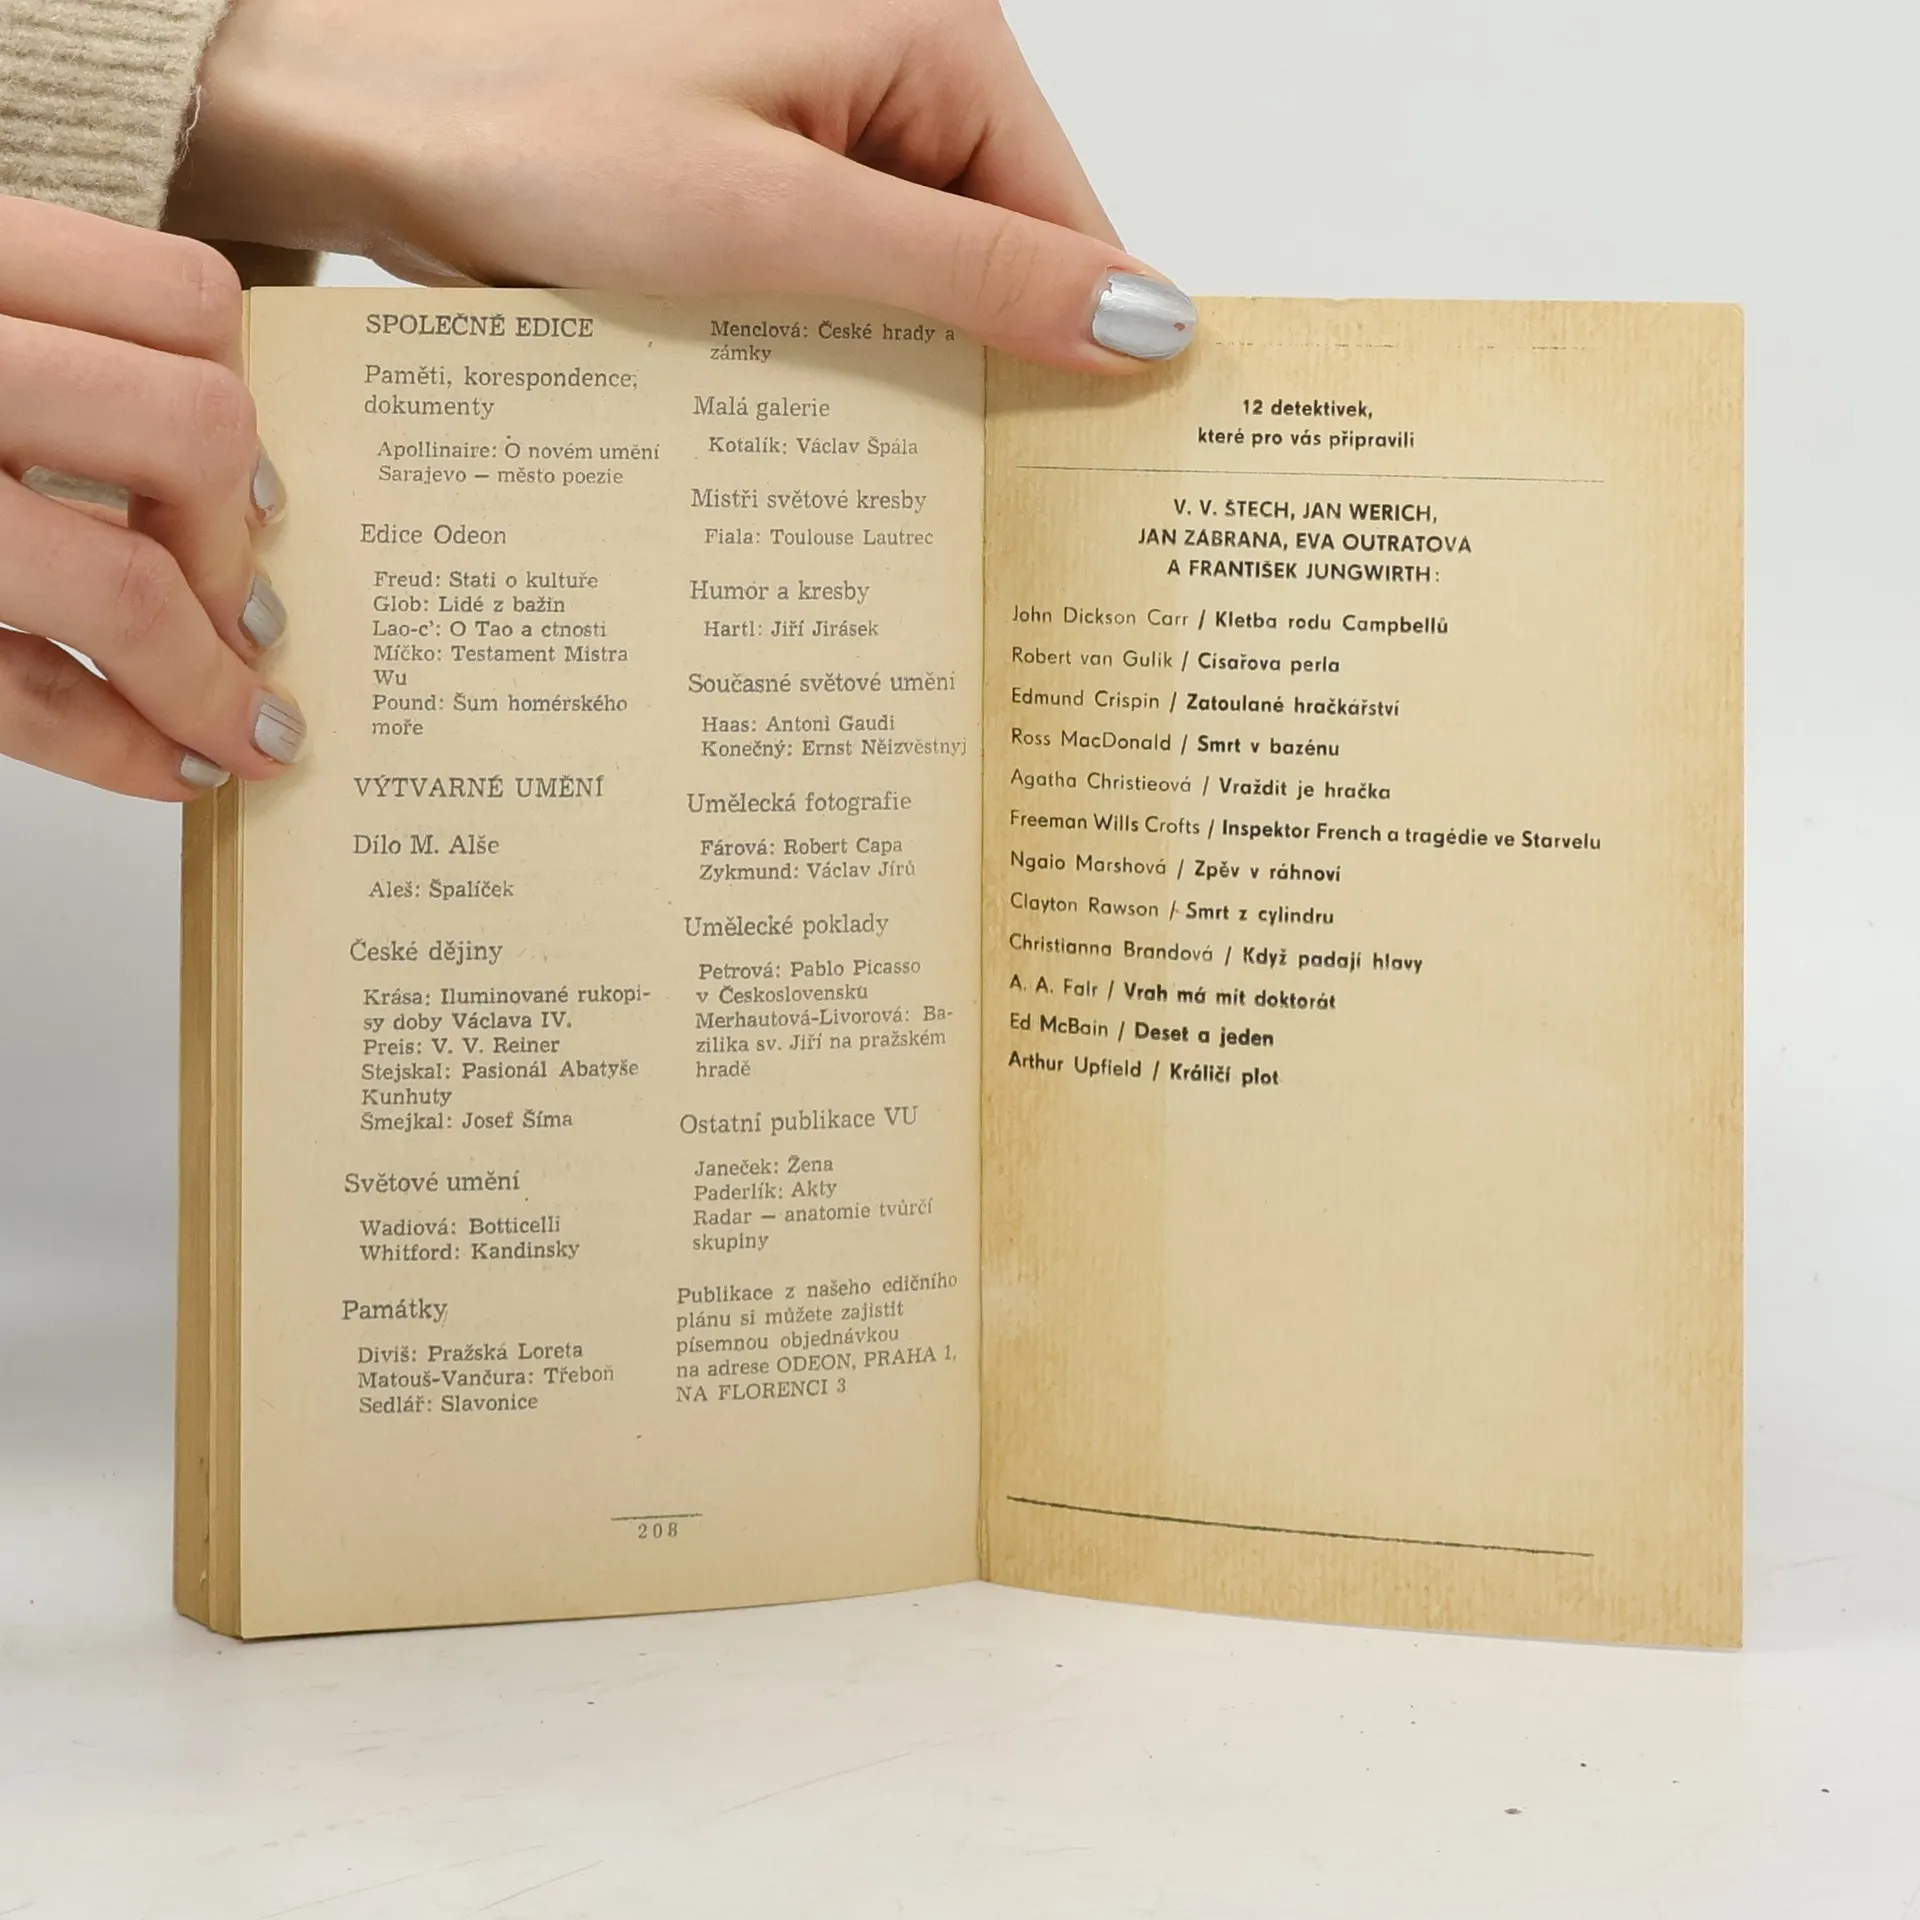 SPOLEČNÉ EDICE
Paměti, korespondence,
dokumenty
Apollinaire: O novém umění
Sarajevo — město poezie
Edice Odeon
Freud: Stati o kultuře
Glob: Lidé z bažin
Lao-c': O Tao a ctnosti
Míčko: Testament Mistra
Wu
Pound: Šum homérského
moře
VÝTVARNÉ UMĚNÍ
Dílo M. Alše
Aleš: Špalíček
České dějiny
Krása: Iluminované rukopi-
sy doby Václava IV.
Preis: V. V. Reiner
Stejskal: Pasionál Abatyše
Kunhuty
Šmejkal: Josef Šíma
Světové umění
Wadiová: Botticelli
Whitford: Kandinsky
Památky
Diviš: Pražská Loreta
Matouš-Vančura: Třeboň
Sedlář: Slavonice
Menclová: České hrady a
zámky
Malá galerie
Kotalík: Václav Špála
Mistři světové kresby
Fiala: Toulouse Lautrec
Humor a kresby
Hartl: Jiří Jirásek
Současné světové umění
Haas: Antoni Gaudi
Konečný: Ernst Něizvěstnyj
Umělecká fotografie
Fárová: Robert Capa
Zykmund: Václav Jírů
Umělecké poklady
Petrová: Pablo Picasso
v Československu
Merhautová-Livorová: Ba-
zilika sv. Jiří na pražském
hradě
Ostatní publikace VU
Janeček: Žena
Paderlík: Akty
Radar — anatomie tvůrčí
skupiny
Publikace z našeho edičního
plánu si můžete zajistit
písemnou objednávkou
na adrese ODEON, PRAHA 1,
NA FLORENCI 3
208
12 detektivek,
které pro vás připravili
V. V. ŠTECH, JAN WERICH,
JAN ZÁBRANA, EVA OUTRATOVÁ
A FRANTIŠEK JUNGWIRTH:
John Dickson Carr / Kletba rodu Campbellů
Robert van Gulik / Císařova perla
Edmund Crispin / Zatoulané hračkářství
Ross MacDonald / Smrt v bazénu
Agatha Christieová / Vraždit je hračka
Freeman Wills Crofts / Inspektor French a tragédie ve Starvelu
Ngaio Marshová / Zpěv v ráhnoví
Clayton Rawson / Smrt z cylindru
Christianna Brandová / Když padají hlavy
A. A. Fair / Vrah má mít doktorát
Ed McBain / Deset a jeden
Arthur Upfield / Králičí plot